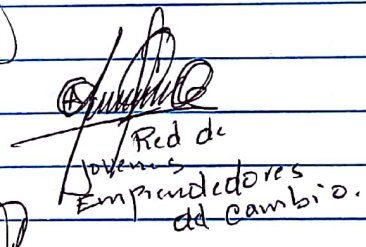 Red de
Jovenes
Emprendedores
del Cambio.